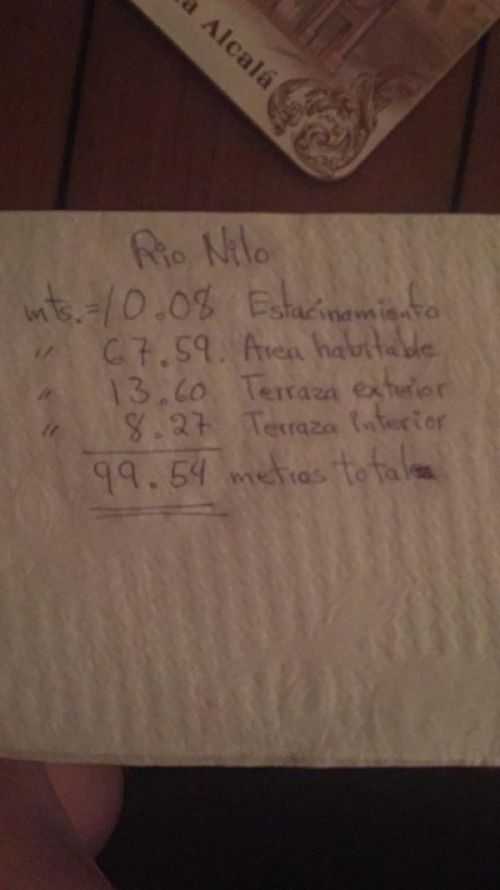 la Alcalá
Rio Nilo
mts. = 10.08 Estacinamiento
" 67.59. Area habitable
" 13.60 Terraza exterior
" 8.27 Terraza interior
99.54 metros total